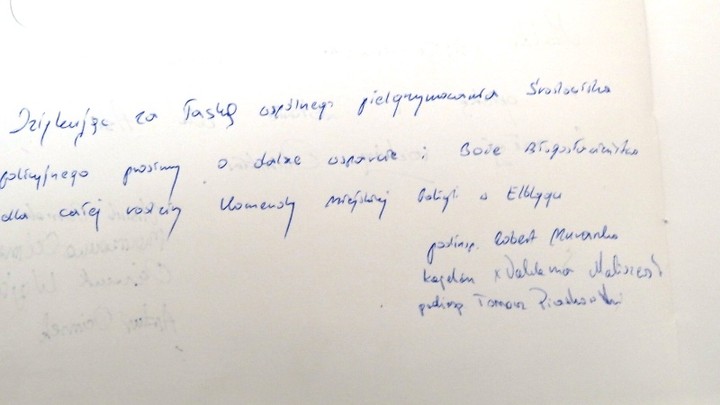 Dziękując za łaskę wspólnego pielgrzymowania środowiska
policyjnego prosimy o dalsze wsparcie i Boże Błogosławieństwo
dla całej rodziny Komendy Miejskiej Policji w Elblągu
podinsp. Robert
kapelan x Waldemar
podinsp Tomasz